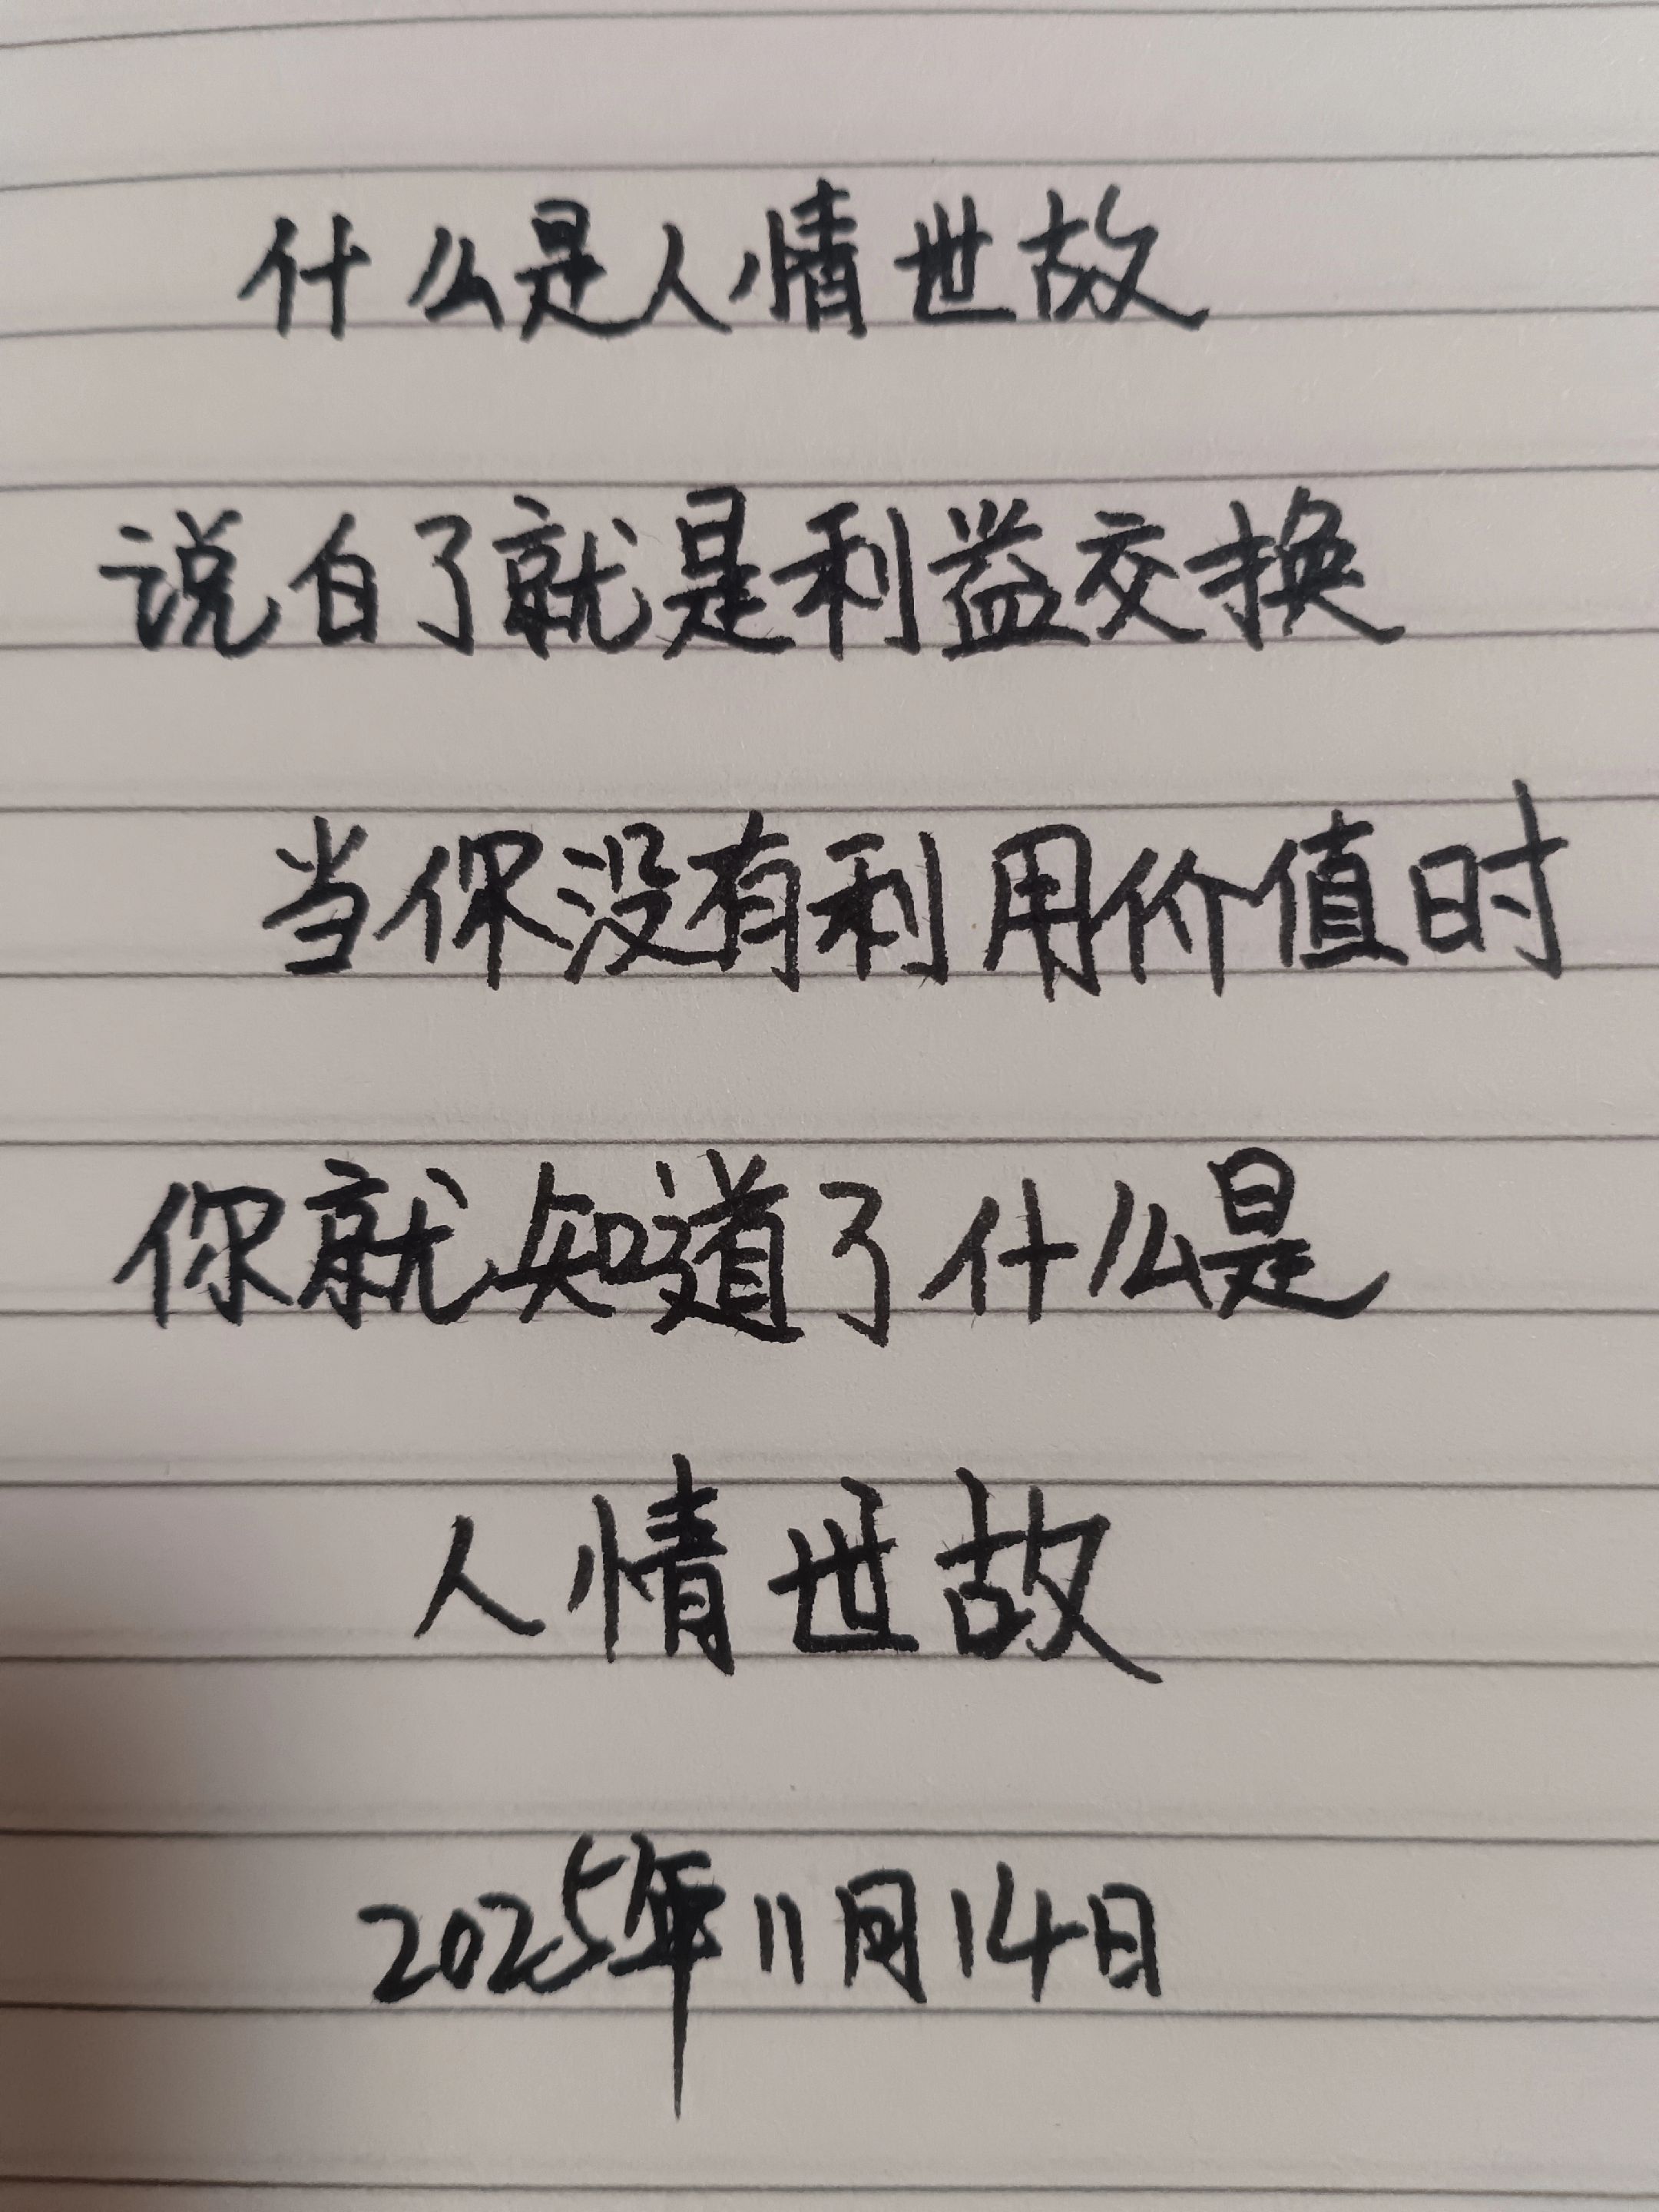 什么是人情世故
说白了就是利益交换
当你没有利用价值时
你就知道了什么是
人情世故
2025年11月14日